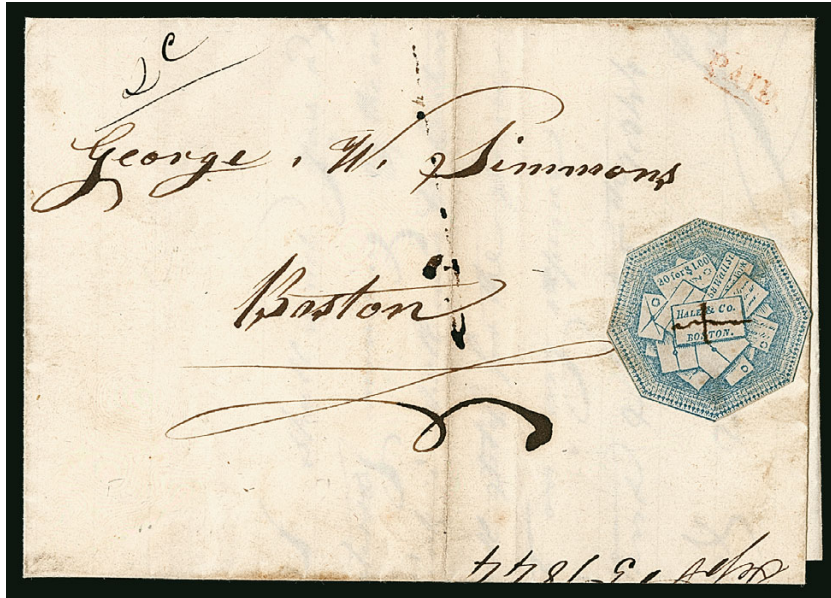 PAID
George. W. Simmons
Boston
20 for $1.00
HALE & Co.
BOSTON.
Sept 5 1844